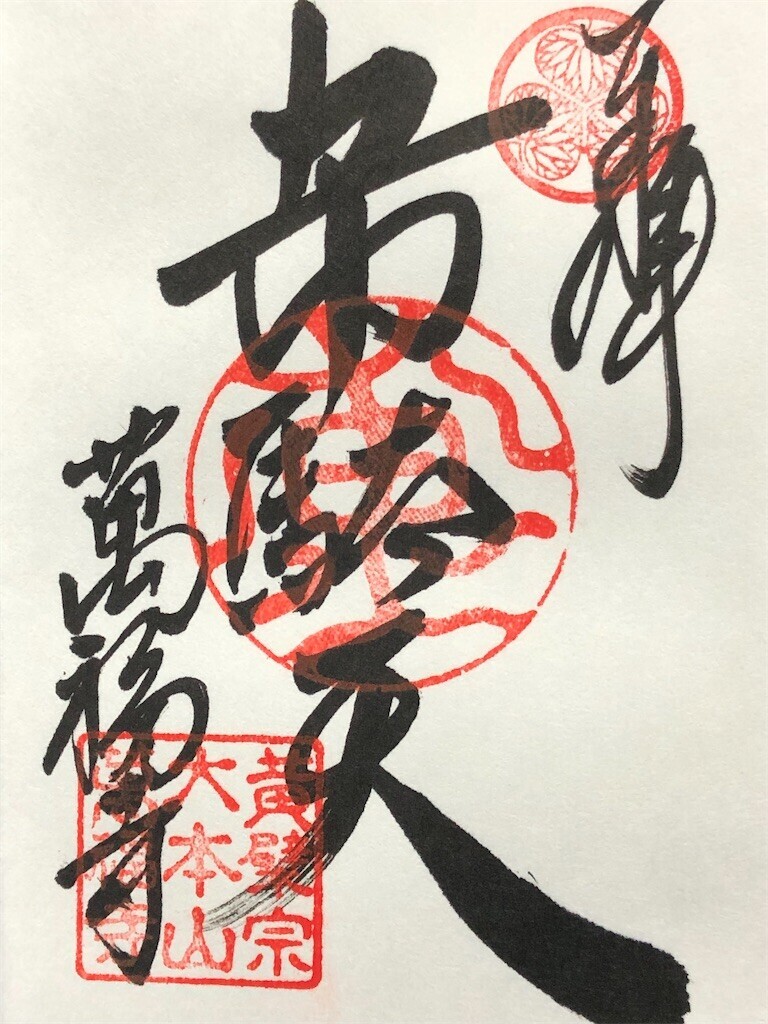 奉拝
韋駄天
萬福寺
黄檗宗
大本山
萬福寺